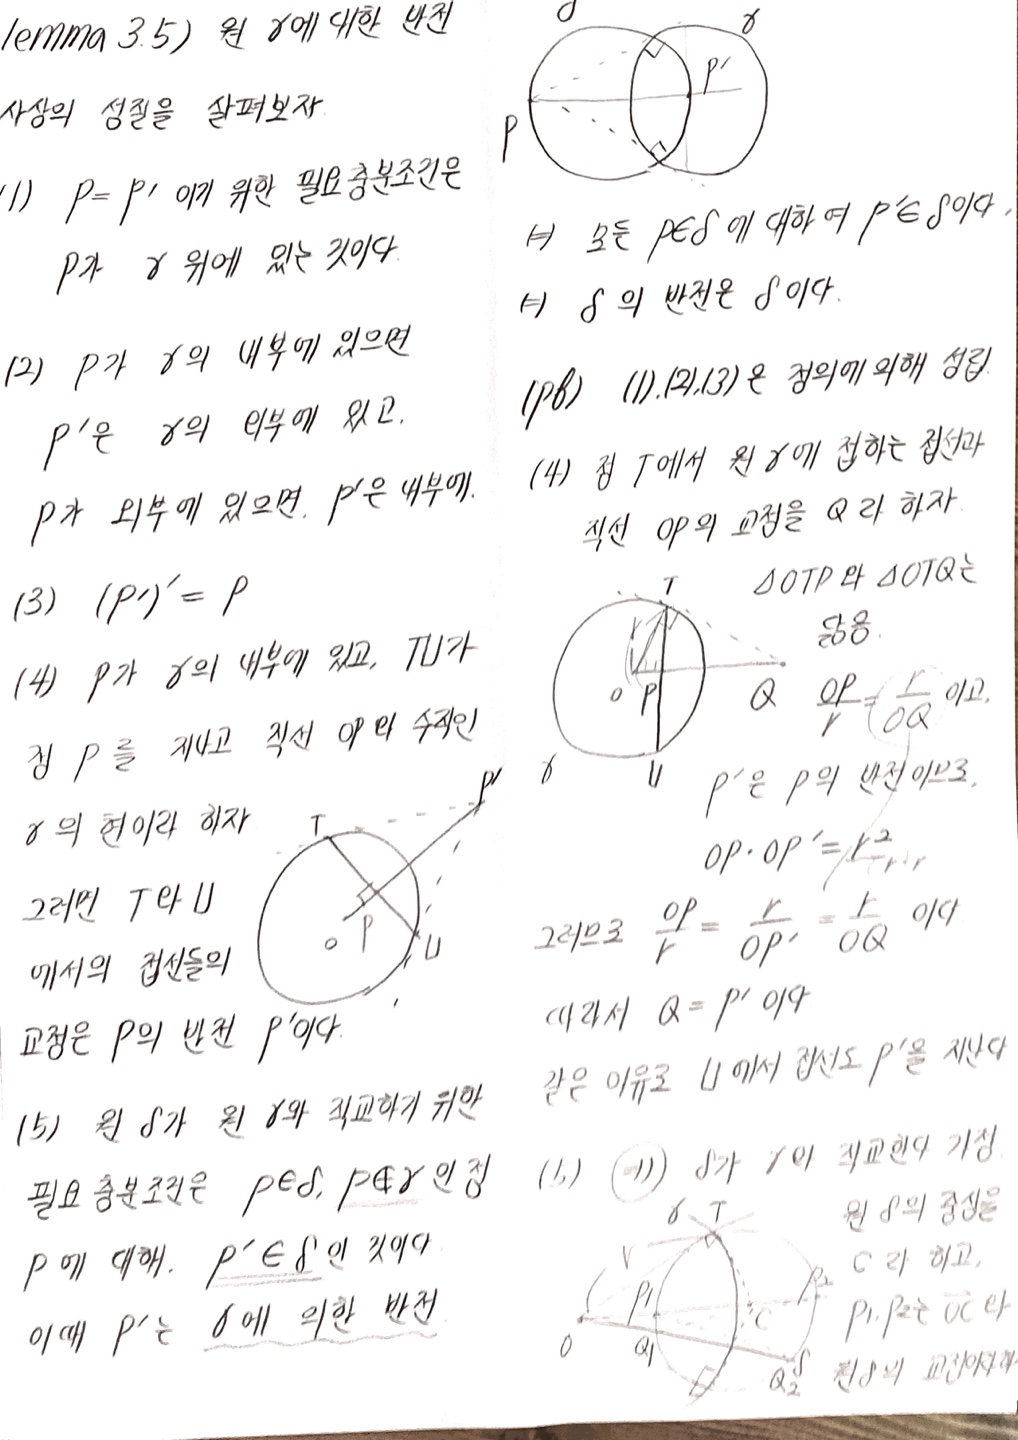 lemma 3.5) 원 γ에 대한 반전
사상의 성질을 살펴보자.
(1) P=P′ 이기 위한 필요충분조건은
P가 γ 위에 있는 것이다.
(2) P가 γ의 내부에 있으면
P′은 γ의 외부에 있고,
P가 외부에 있으면, P′은 내부에.
(3) (P′)′ = P
(4) P가 γ의 내부에 있고, TU가
점 P를 지나고 직선 OP와 수직인
γ의 현이라 하자
그러면 T와 U
에서의 접선들의
교점은 P의 반전 P′이다.
T
P′
O
P
U
(5) 원 δ가 원 γ와 직교하기 위한
필요충분조건은 P∈δ, P∉γ인 점
P에 대해, P′∈δ인 것이다
이때 P′는 γ에 의한 반전
δ
γ
P′
P
⇔ 모든 P∈δ에 대하여 P′∈δ이다.
⇔ δ의 반전은 δ이다.
(pf) (1),(2),(3)은 정의에 의해 성립.
(4) 점 T에서 원 γ에 접하는 접선과
직선 OP의 교점을 Q라 하자.
T
r
O
P
Q
γ
U
△OTP와 △OTQ는
닮음.
OP/r = r/OQ 이고,
P′은 P의 반전이므로,
OP·OP′=r²
r·r
그러므로 OP/r = r/OP′ = r/OQ 이다
따라서 Q=P′이다
같은 이유로 U에서 접선도 P′을 지난다
(5) δ가 γ와 직교한다 가정.
원 δ의 중심을
C라 하고,
P₁, P₂는 OC와
원 δ의
γ
T
V
P₁
P₂
C
O
Q₁
Q₂
δ